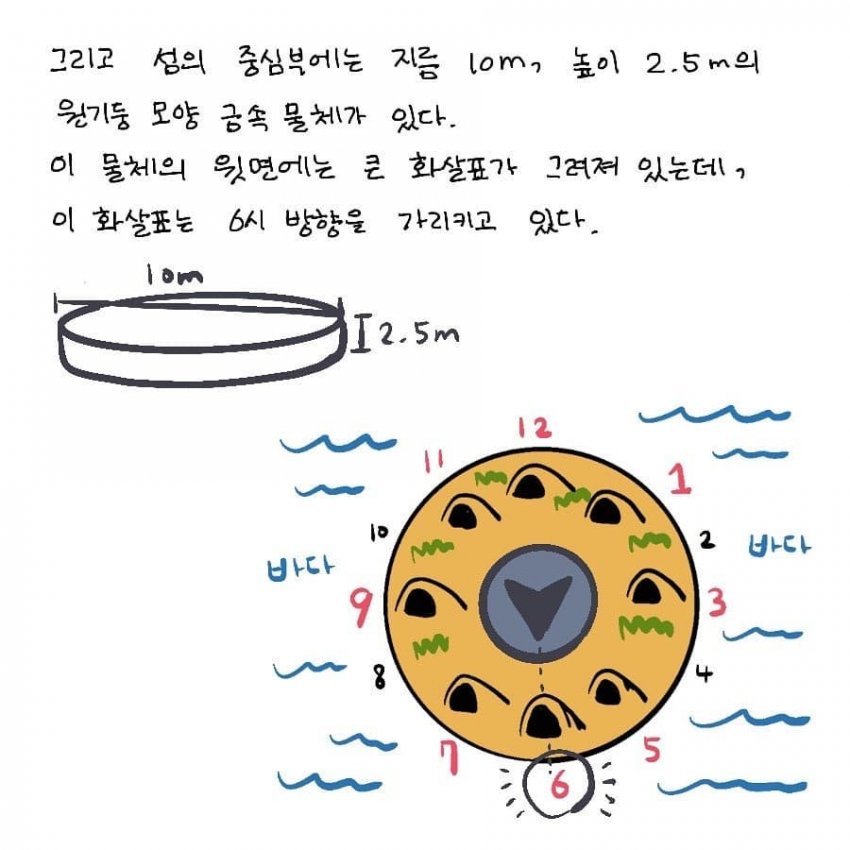 그리고 섬의 중심부에는 지름 10m, 높이 2.5m의
원기둥 모양 금속 물체가 있다.
이 물체의 윗면에는 큰 화살표가 그려져 있는데,
이 화살표는 6시 방향을 가리키고 있다.
10m
2.5m
12
11
1
10
2
바다
바다
9
3
8
4
7
5
6